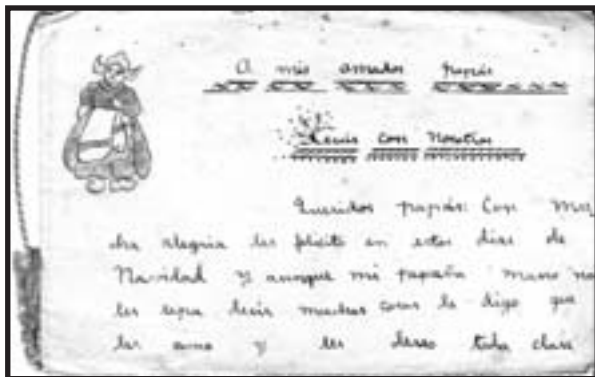 A mis amados papás
con Nosotros
Queridos papás: Con mu
cha alegria les felicito en estos dias de
Navidad y aunque mi mano no
les sepa decir muchas cosas le digo que
los amo y les deseo toda clase